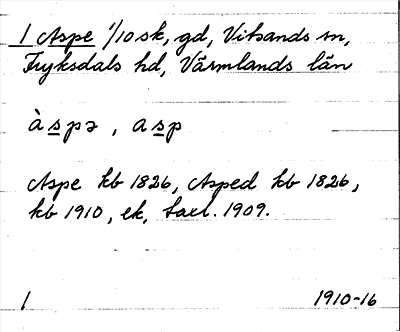 1 Aspe 1/10 sk, gd, Vitsands sn,
Fryksdals hd, Värmlands län
àspə, asp
Aspe kb 1826, Asped kb 1826,
kb 1910, ek, 1909.
1 1910-16